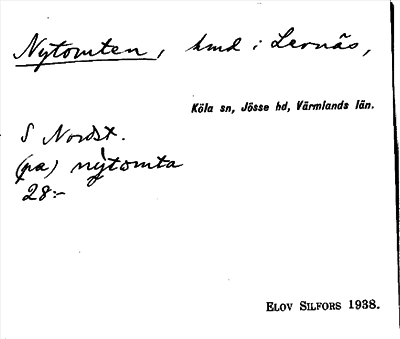 Nytomten, hmd i Lernäs,
Köla sn, Jösse hd, Värmlands län.
S Nordst.
(pa) nytomta
28:-
ELOV SILFORS 1938.